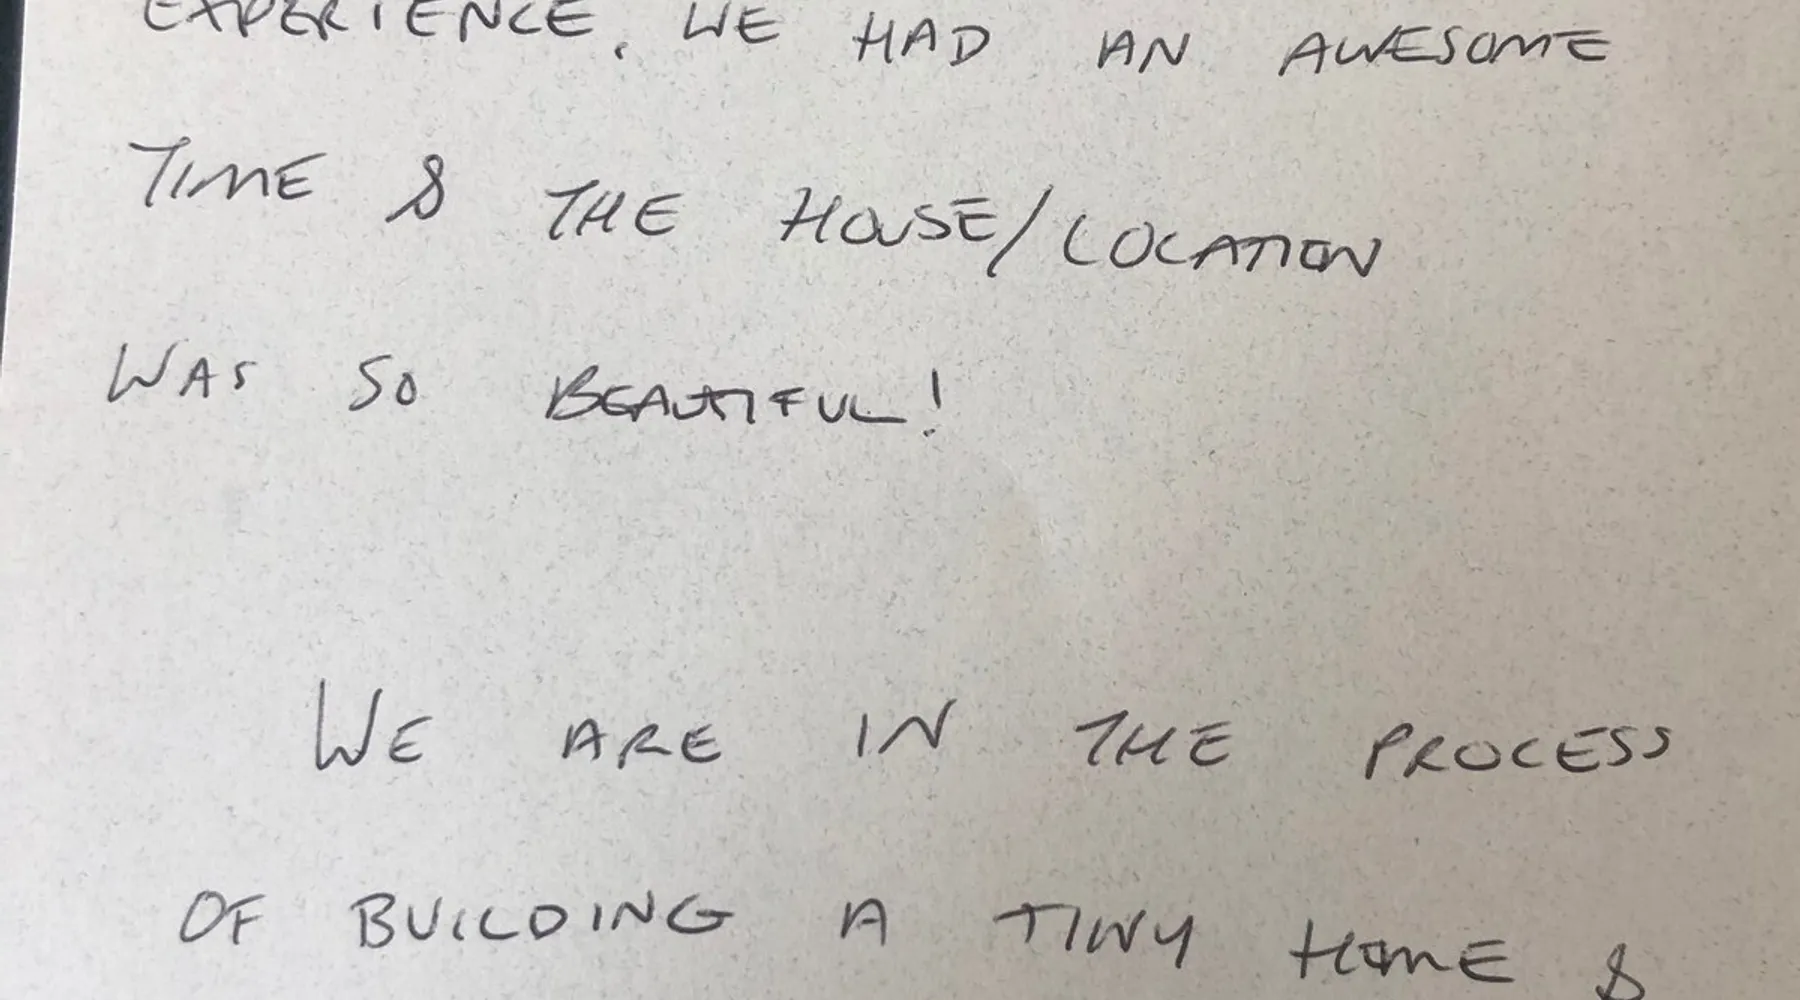 EXPERIENCE. WE HAD AN AWESOME
TIME & THE HOUSE/LOCATION
WAS SO BEAUTIFUL!
WE ARE IN THE PROCESS
OF BUILDING A TINY HOME &